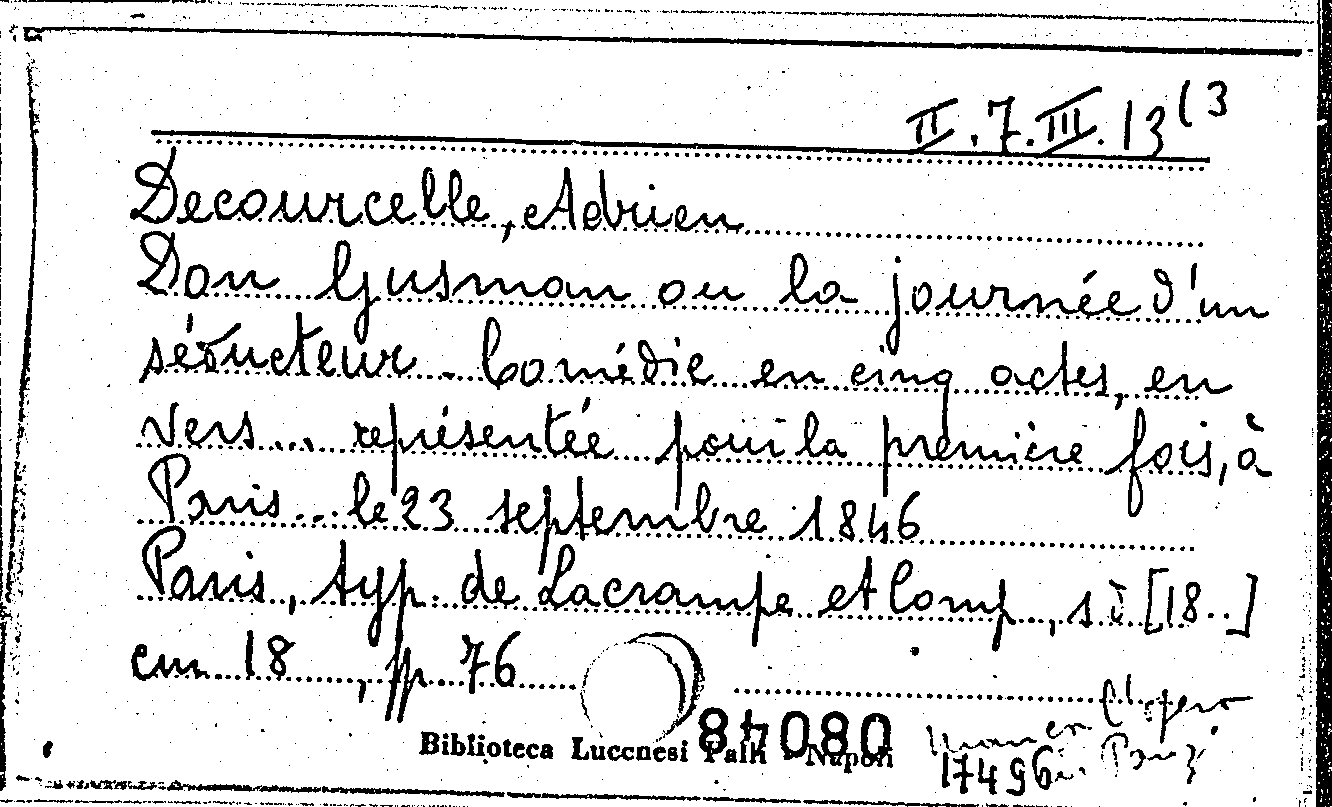 II.7.III.13(3
Decourcelle, Adrien
Don Gusman ou la journée d'un
séducteur - Comédie en cinq actes, en
vers... représentée pour la première fois, à
Paris... le 23 septembre 1846
Paris, typ. de Lacrampe et Comp, s d [18..]
cm 18, pp 76
L'opera
manca
17496
Biblioteca Lucchesi Palli - Napoli
48080